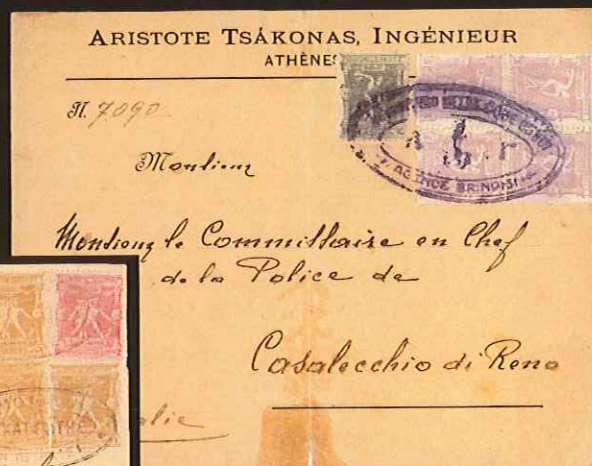 ARISTOTE TSÁKONAS, INGÉNIEUR
ATHÈNES
N. 7090
Monsieur
Monsieur le Commissaire en Chef
de la Police de
Casalecchio di Reno
alie
AGENCE BRINDISI